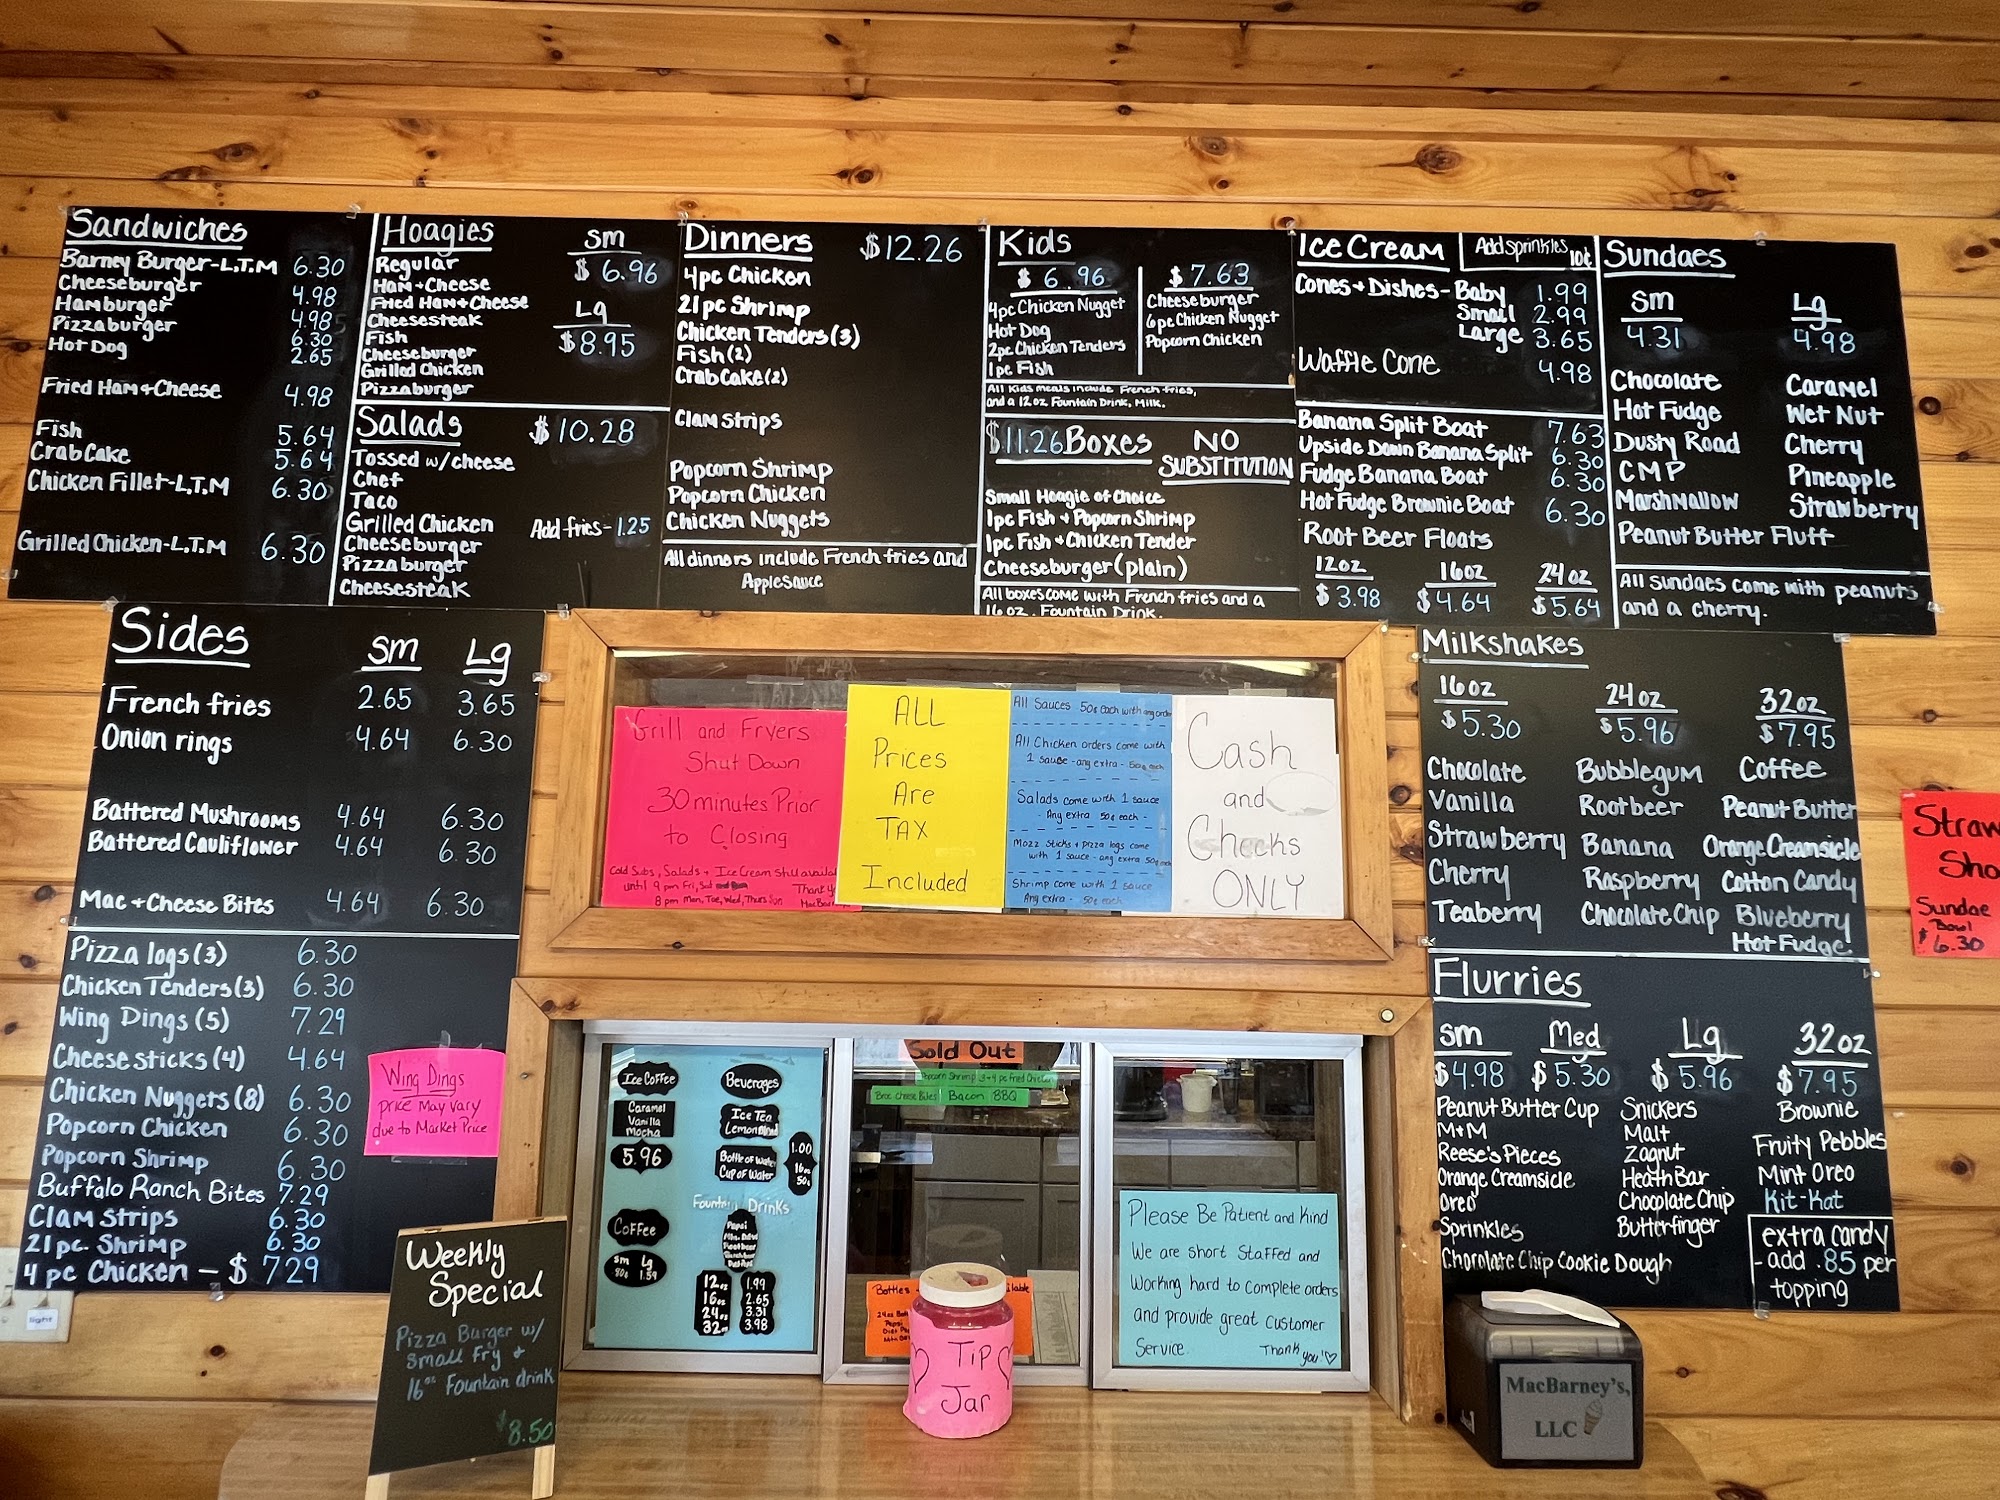 Sandwiches
Barney Burger-L,T,M 6.30
Cheeseburger 4.98
Hamburger 4.98
Pizzaburger 6.30
Hot Dog 2.65
Fried Ham+Cheese 4.98
Fish 5.64
Crab Cake 5.64
Chicken Fillet-L,T,M 6.30
Grilled Chicken-L,T,M 6.30
Hoagies
sm
$6.96
Regular
Ham+Cheese
Fried Ham+Cheese
Lg
$8.95
Cheesesteak
Fish
Cheeseburger
Grilled Chicken
Pizzaburger
Salads $10.28
Tossed w/cheese
Chef
Taco
Grilled Chicken
Add fries-1.25
Cheeseburger
Pizzaburger
Cheesesteak
Dinners $12.26
4pc Chicken
21pc Shrimp
Chicken Tenders (3)
Fish (2)
Crab Cake (2)
Clam Strips
Popcorn Shrimp
Popcorn Chicken
Chicken Nuggets
All dinners include French fries and
Applesauce
Kids
$6.96
4pc Chicken Nugget
Hot Dog
2pc Chicken Tenders
1pc Fish
$7.63
Cheeseburger
6pc Chicken Nugget
Popcorn Chicken
All Kids meals include French fries,
and a 12oz Fountain Drink, Milk.
$11.26 Boxes NO
SUBSTITUTION
Small Hoagie of Choice
1pc Fish + Popcorn Shrimp
1pc Fish + Chicken Tender
Cheeseburger (plain)
All boxes come with French fries and a
16 oz. Fountain Drink.
Ice Cream
Add sprinkles
10¢
Cones + Dishes - Baby 1.99
Small 2.99
Large 3.65
Waffle Cone 4.98
Banana Split Boat 7.63
Upside Down Banana Split 6.30
Fudge Banana Boat 6.30
Hot Fudge Brownie Boat 6.30
Root Beer Floats
12oz 16oz 24oz
$3.98 $4.64 $5.64
Sundaes
sm Lg
4.31 4.98
Chocolate Caramel
Hot Fudge Wet Nut
Dusty Road Cherry
CMP Pineapple
Marshmallow Strawberry
Peanut Butter Fluff
All sundaes come with peanuts
and a cherry.
Sides sm Lg
French fries 2.65 3.65
Onion rings 4.64 6.30
Battered Mushrooms 4.64 6.30
Battered Cauliflower 4.64 6.30
Mac + Cheese Bites 4.64 6.30
Pizza logs (3) 6.30
Chicken Tenders (3) 6.30
Wing Dings (5) 7.29
Cheese sticks (4) 4.64
Chicken Nuggets (8) 6.30
Popcorn Chicken 6.30
Popcorn Shrimp 6.30
Buffalo Ranch Bites 7.29
Clam Strips 6.30
21 pc. Shrimp 6.30
4 pc Chicken - $7.29
Wing Dings
price May Vary
due to Market Price
Weekly
Special
Pizza Burger w/
small fry +
16oz Fountain drink
$8.50
Grill and Fryers
Shut Down
30 minutes Prior
to Closing
Cold Subs, Salads + Ice Cream still availa
until 9 pm Fri, Sat
8 pm Mon, Tue, Wed, Thurs, Sun
Thank y
MacBar
ALL
Prices
Are
TAX
Included
All Sauces 50¢ each with any order
All Chicken orders come with
1 sauce - any extra - 50¢ each
Salads come with 1 sauce
- Any extra 50¢ each -
Mozz Sticks + pizza logs come
with 1 sauce - any extra 50¢
Shrimp come with 1 sauce
Any extra - 50¢ each
Cash
and
Checks
ONLY
Milkshakes
16oz 24oz 32oz
$5.30 $5.96 $7.95
Chocolate Bubblegum Coffee
Vanilla Rootbeer Peanut Butter
Strawberry Banana Orange Creamsicle
Cherry Raspberry Cotton Candy
Teaberry Chocolate Chip Blueberry
Hot Fudge
Flurries
sm Med Lg 32oz
$4.98 $5.30 $5.96 $7.95
Peanut Butter Cup Snickers Brownie
M+M Malt Fruity Pebbles
Reese's Pieces Zagnut Mint Oreo
Orange Creamsicle Heath Bar Kit-Kat
Oreo Chocolate Chip
Sprinkles Butterfinger
Chocolate Chip Cookie Dough
extra candy
- add .85 per
topping
Straw
Sho
Sundae
Bowl
$6.30
Ice Coffee
Caramel
Vanilla
Mocha
5.96
Coffee
sm Lg
80¢ 1.59
Beverages
Ice Tea
Lemon Blend
Bottle of Water 1.00
Cup of Water 16oz
50¢
Fountain Drinks
Pepsi
Mtn. Dew
Rootbeer
12oz 1.99
16oz 2.65
24oz 3.31
32oz 3.98
Sold Out
Popcorn Shrimp 3+4 pc Fried Chicken
Broc Cheese Bites Bacon BBQ
Bottles
ilable
24oz
Pepsi
Tip
Jar
Please Be Patient and Kind
We are short Staffed and
Working hard to Complete orders
and provide great Customer
Service.
Thank you!
MacBarney's,
LLC
light